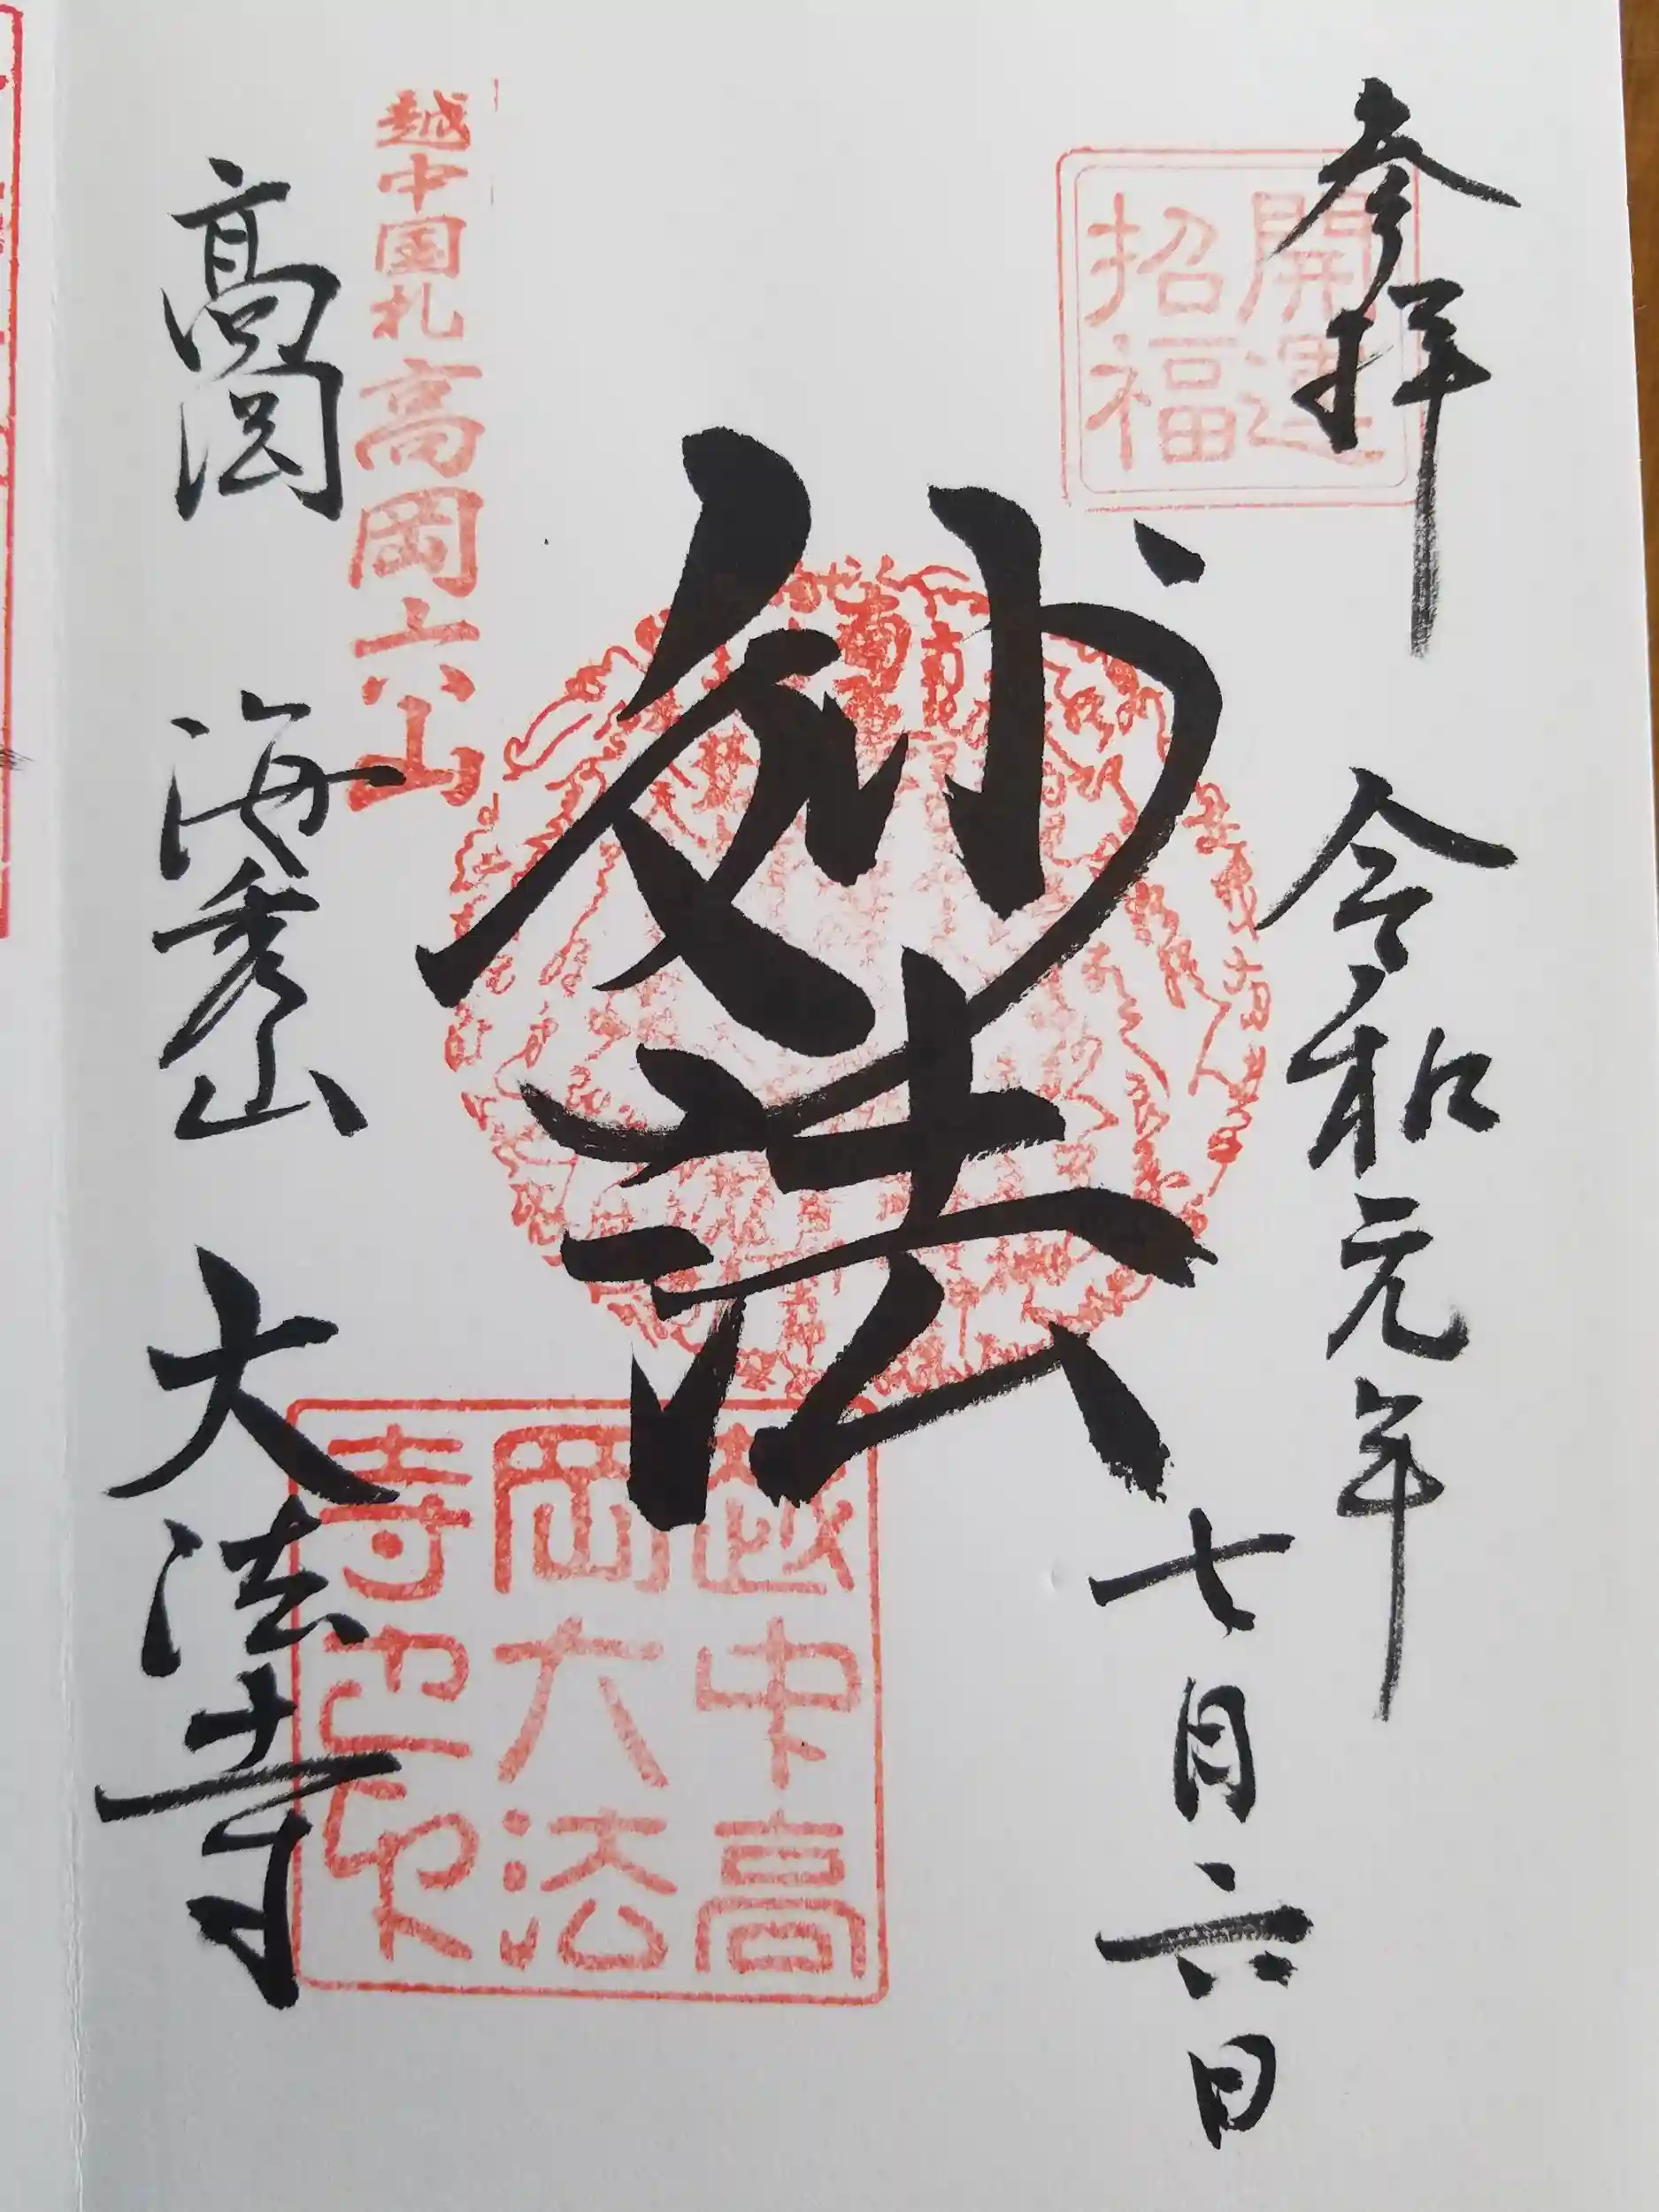 参拝 令和元年
七月六日
開運
招福
妙法
越中国札 高岡六山
高岡 海秀山 大法寺
越中高
岡大法
寺之印